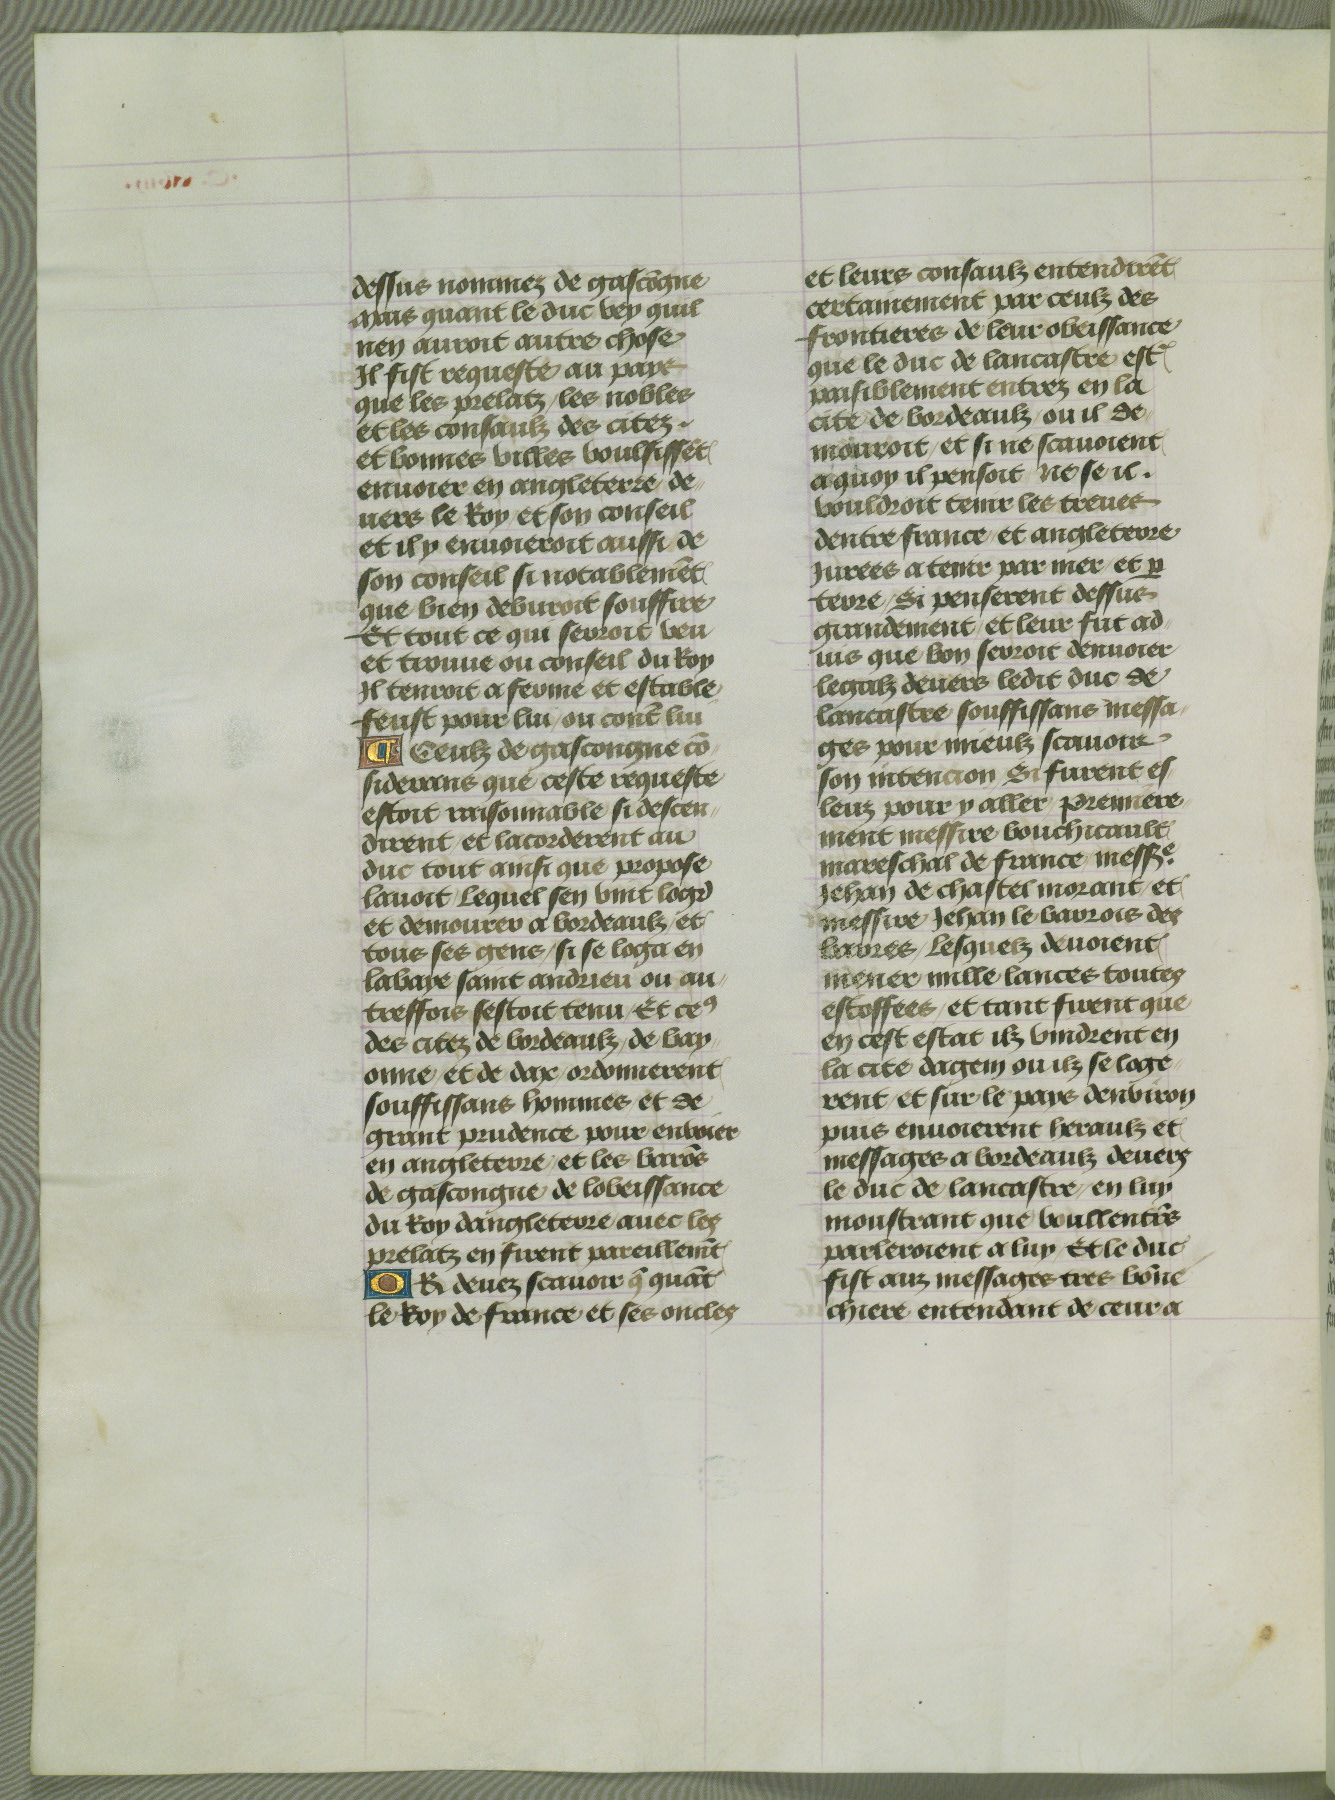 dessus nommez de gascõgne
mais quant le duc vey quil
nen auroit autre chose
Il fist requeste au pays
que les prelatz / les nobles
et les consaulz des citez .
et bonnes villes voulsissẽt
enuoier en angleterre / de-
uers le Roy et son conseil
et il y enuoieroit aussi de
son conseil si notablemẽt
que bien deburoit souffire
Et tout ce qui seroit veu
et trouue ou conseil du Roy
Il tenroit a ferme et estable
feust pour lui / ou contͬ lui
Ceulz de gascongne cõ-
siderans que ceste requeste
estoit raisonnable si descen-
dirent et lacorderent au
duc tout ainsi que propose
lauoit / Lequel sen vint logr̃
et demourer a bordeaulz / et
tous ses gens / si se loga en
labaye saint andrieu ou au-
treffois sestoit tenu / Et ceꝰ
des citez de bordeaulz / de bay-
onne / et de dax / ordonnerent
souffissans hommes et de
grant prudence pour envoier
en angleterre / et les barõs
de gascongne de lobeissance
du Roy dangleterre auec les
prelatz en firent pareillemẽt
OR deuez scauoir q̃ quãt
le Roy de france et ses oncles
et leurs consaulz entendirẽt
certainement par ceulz des
frontieres de leur obeissance
que le duc de lancastre est̃
paisiblement entrez en la
cite de bordeaulz / ou il de-
mouroit / et si ne scauoient
a quoy il pensoit Ne se il .
vouldroit tenir les treues
dentre france / et angleterre
Jurees a tenir par mer / et ꝑ
terre / Si penserent dessus
grandement / et leur fut ad-
uis que bon seroit denuoier
legalz deuers ledit duc de
lancastre souffissans messa-
ges pour mieulz scauoir
son intencion Si furent es-
leuz pour y aller / premiere-
ment messire bouchicault
mareschal de france / messẽ.
Jehan de chastel morant / et
messire Jehan le barrois des
barres / Lesquelz deuoient
mener mille lances toutes
estoffees / et tant firent que
en cest estat ilz vindrent en
la cite dagem ou ilz se loge-
rent / et sur le pays denviron
puis enuoierent heraulz et
messages a bordeaulz deuers
le duc de lancastre / en luy
moustrant que voullentr̃s
parleroient a luy / Et le duc
fist auz messages tres bõne
chiere entendant de ceur a